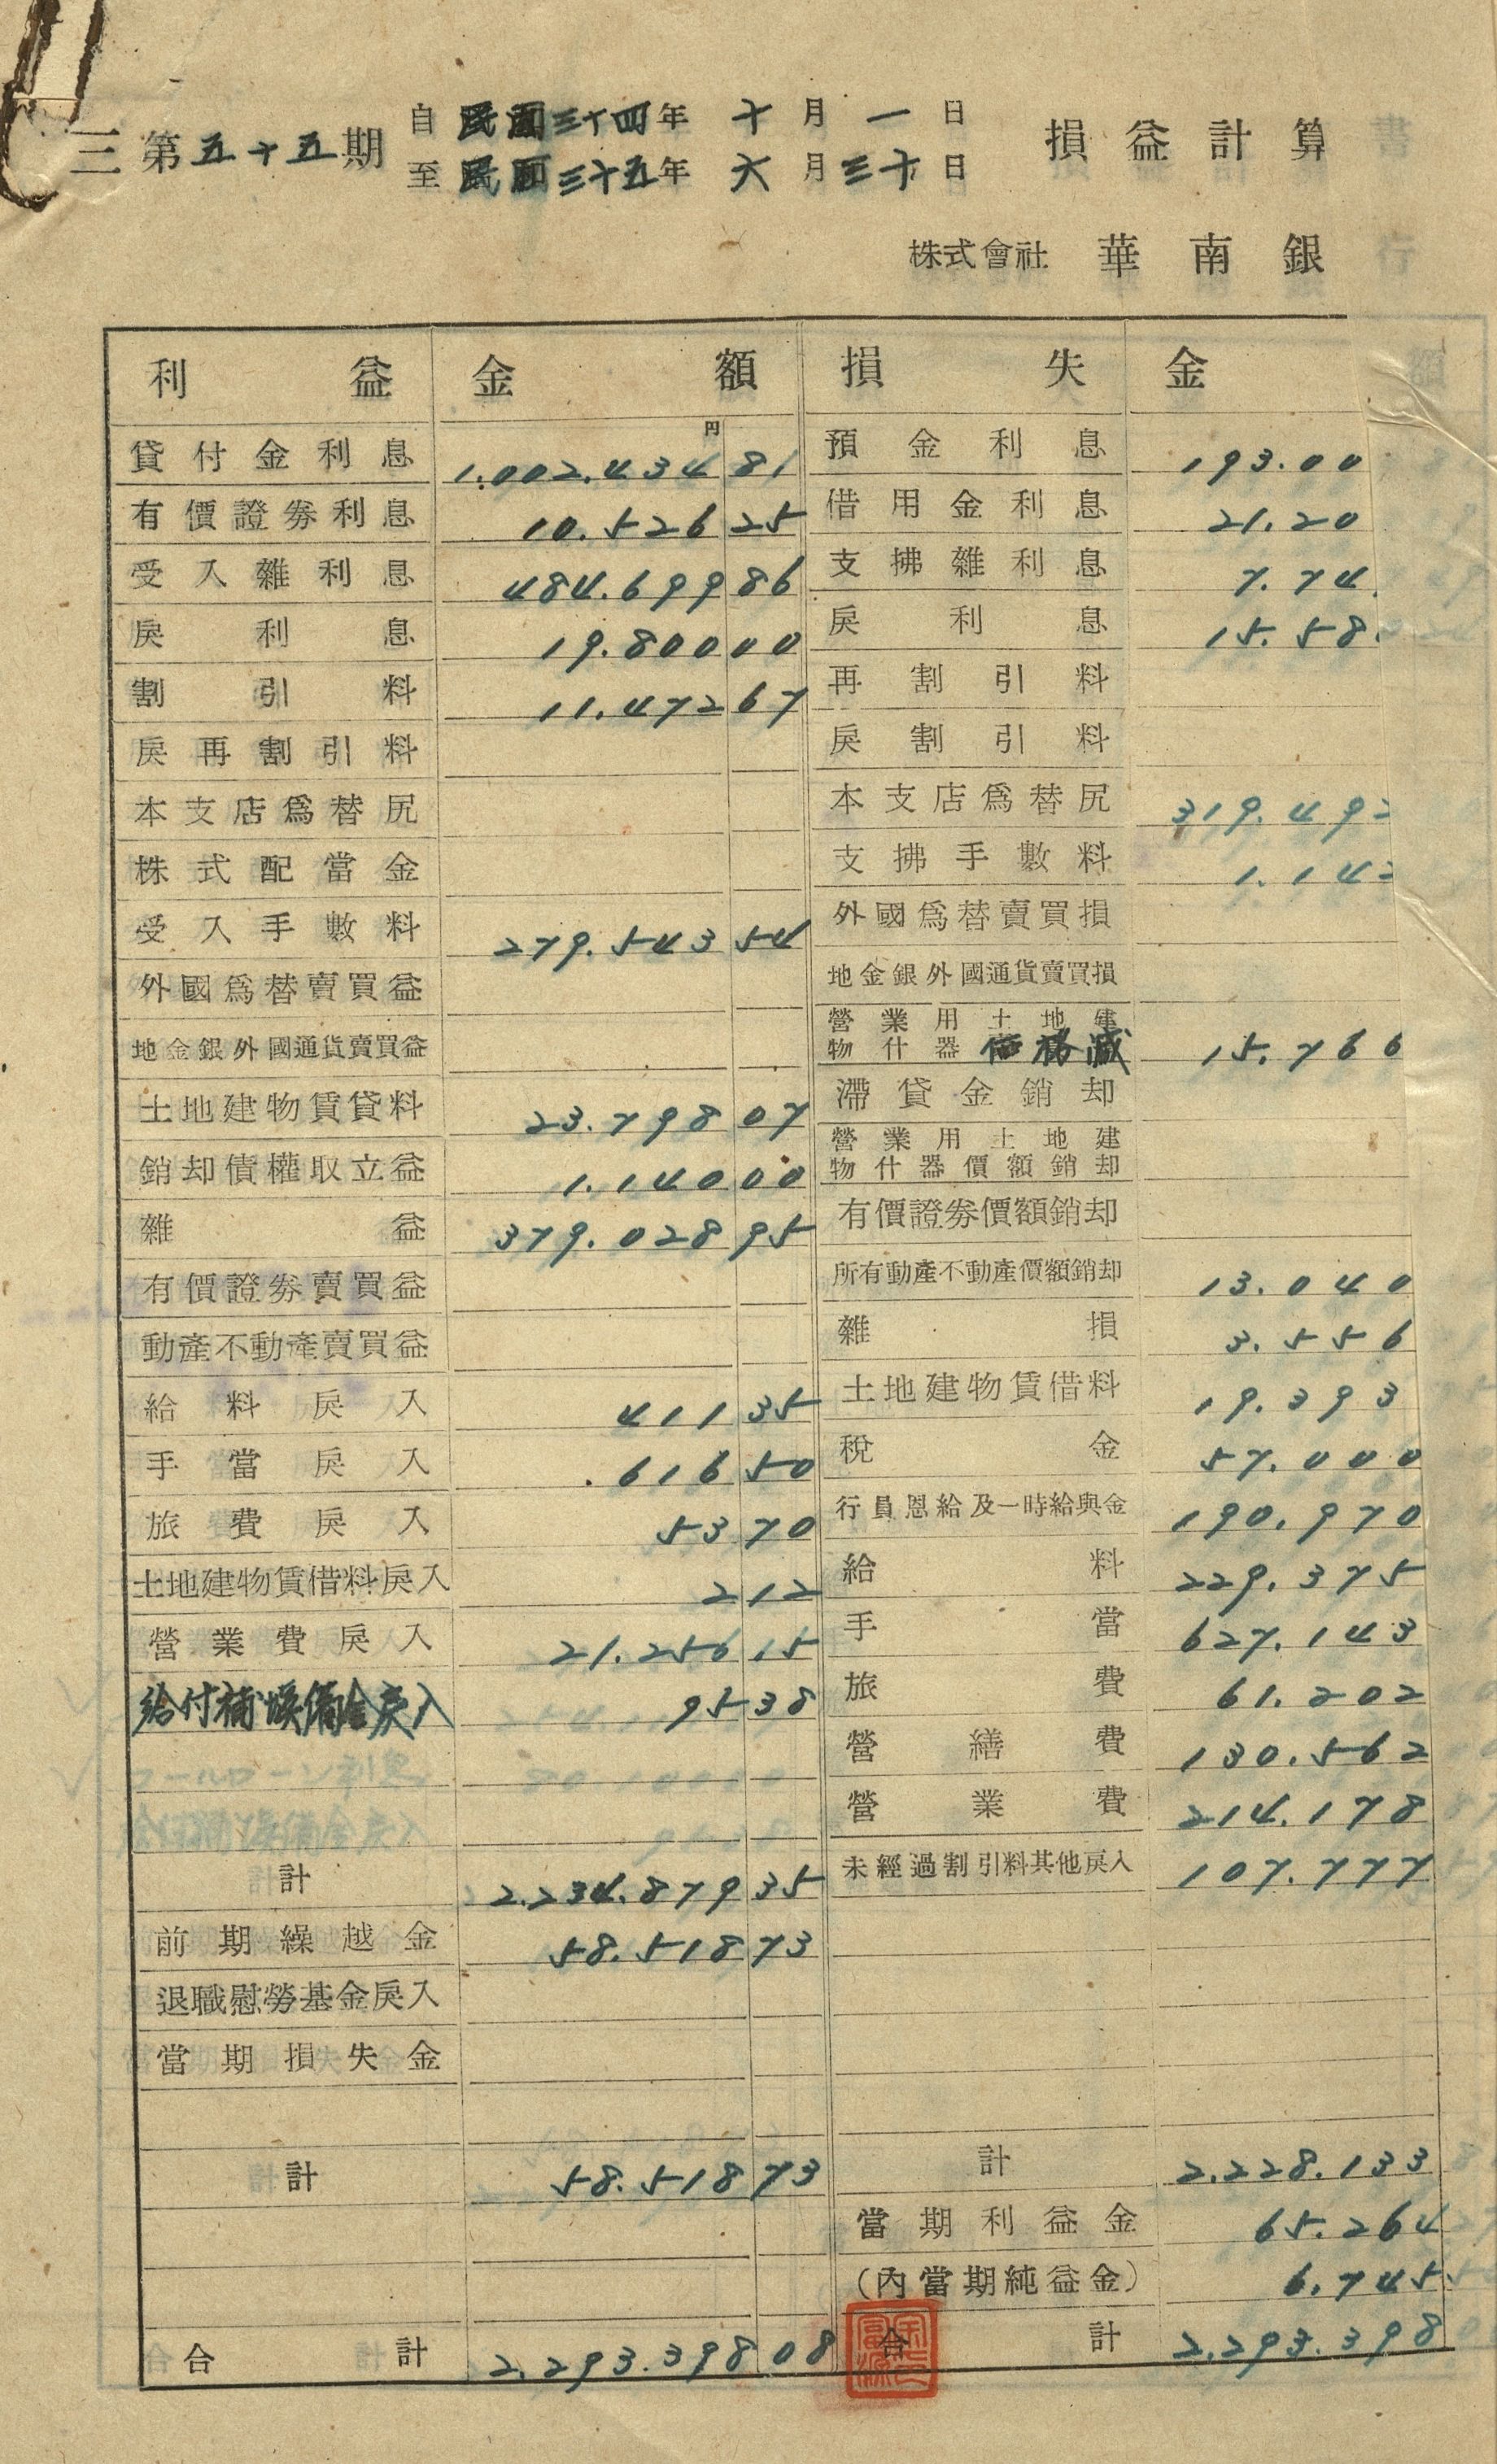 三 第五十五期 自 民國三十四年 十 月 一 日
至 民國三十五年 六 月 三十 日
損益計算書
株式會社 華南銀行
利益 金額 損失 金額
円
貸付金利息 1.002.434 81 預金利息 193.00
有價證券利息 10.526 25 借用金利息 21.20
受入雜利息 484.699 86 支拂雜利息 7.74
戾利息 19.800 00 戾利息 15.58
割引料 11.472 67 再割引料
戾再割引料 戾割引料
本支店爲替尻 本支店爲替尻 319.492
株式配當金 支拂手數料 1.142
受入手數料 279.543 54 外國爲替賣買損
外國爲替賣買益 地金銀外國通貨賣買損
地金銀外國通貨賣買益 營業用土地建物什器価格減 15.766
土地建物賃貸料 23.798 07 滯貸金銷却
銷却債權取立益 1.140 00 營業用土地建物什器價額銷却
雜益 379.028 95 有價證券價額銷却
有價證券賣買益 所有動產不動產價額銷却 13.040
動產不動產賣買益 雜損 3.556
給料戾入 411 35 土地建物賃借料 19.393
手當戾入 616 50 稅金 57.000
旅費戾入 53 70 行員恩給及一時給與金 190.970
土地建物賃借料戾入 2 12 給料 229.375
營業費戾入 21.256 15 手當 627.143
給付補塡備金戾入 95 38 旅費 61.202
コールローン利息 營繕費 130.562
營業費 214.178
計 2.234.879 35 未經過割引料其他戾入 107.777
前期繰越金 58.518 73
退職慰勞基金戾入
當期損失金
計 58.518 73 計 2.228.133
當期利益金 65.264
(內當期純益金) 6.745
合計 2.293.398 08 合計 2.293.398